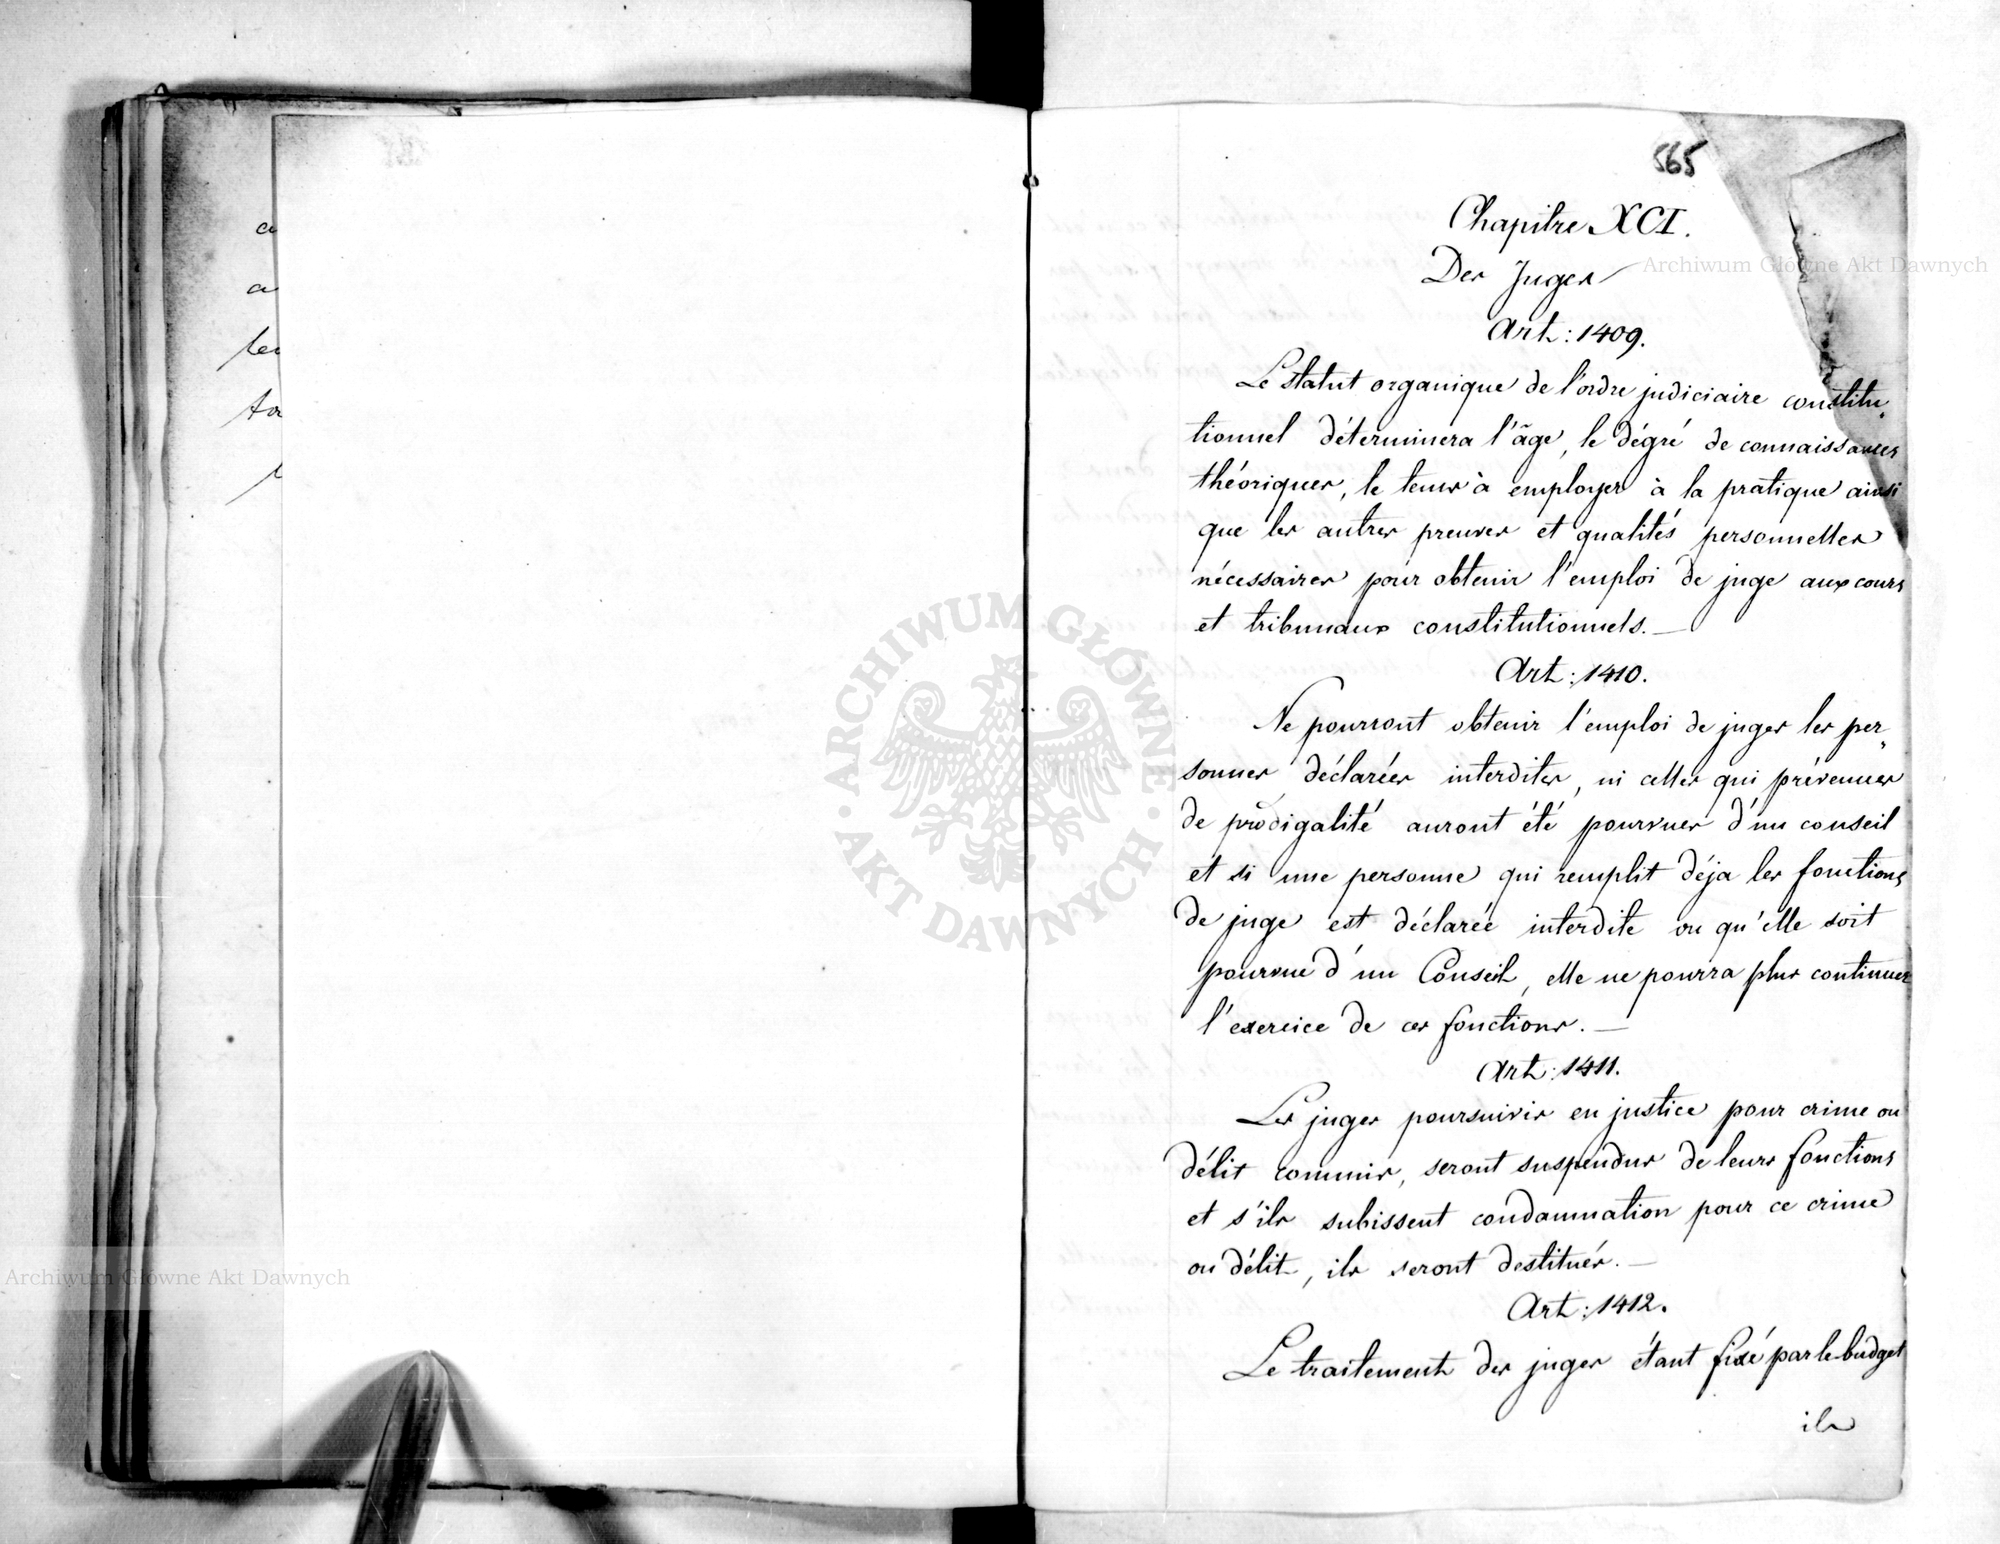 565
Chapitre XCI.
Des Juges
Art: 1409.
Le statut organique de l'ordre judiciaire constitu„
tionnel déterminera l'âge, le dégré de connaissances
théoriques, le tems à employer à la pratique ainsi
que les autres preuves et qualités personnelles
nécessaires pour obtenir l'emploi de juge aux cours
et tribunaux constitutionnels. —
Art: 1410.
Ne pourront obtenir l'emploi de juges les per„
sonnes déclarées interdites, ni celles qui prévenues
de prodigalité auront été pourvues d'un conseil
et si une personne qui remplit déja les fonctions
de juge est déclarée interdite ou qu'elle soit
pourvue d'un Conseil, elle ne pourra plus continuer
l'exercice de ces fonctions. —
Art: 1411.
Les juges poursuivis en justice pour crime ou
délit commis, seront suspendus de leurs fonctions
et s'ils subissent condamnation pour ce crime
ou délit, ils seront destitués. —
Art: 1412.
Le traitement des juges étant fixé par le budget
ils
Archiwum Główne Akt Dawnych
ARCHIWUM GŁÓWNE · AKT DAWNYCH ·
Archiwum Główne Akt Dawnych